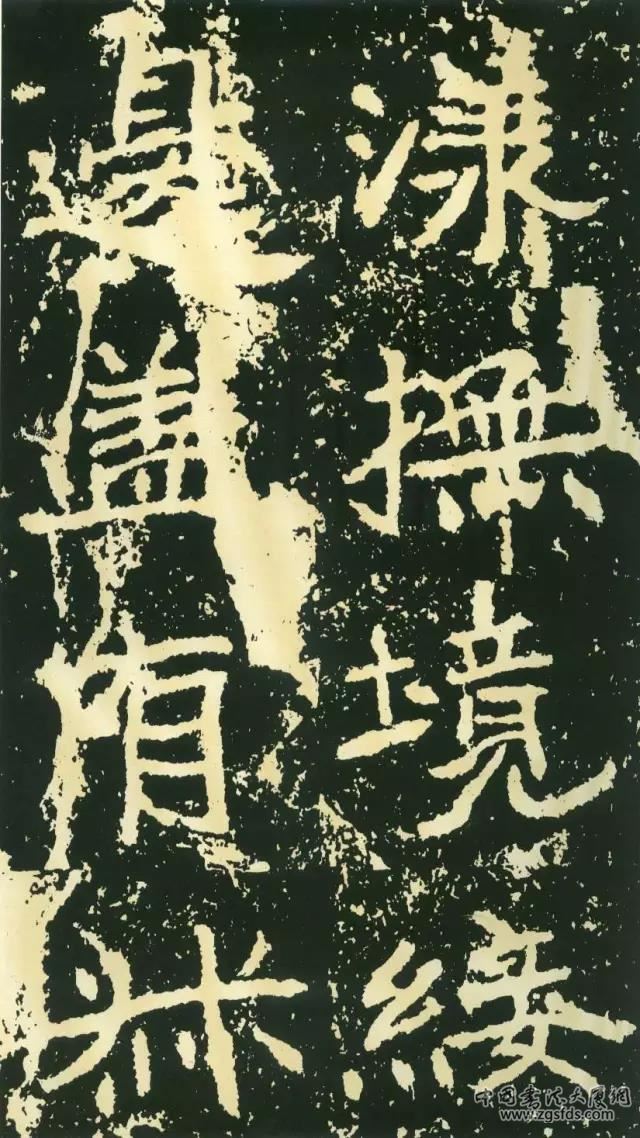 漾撫境綏
邊盖有叔
中国书法大厦网
www.zgsfds.com